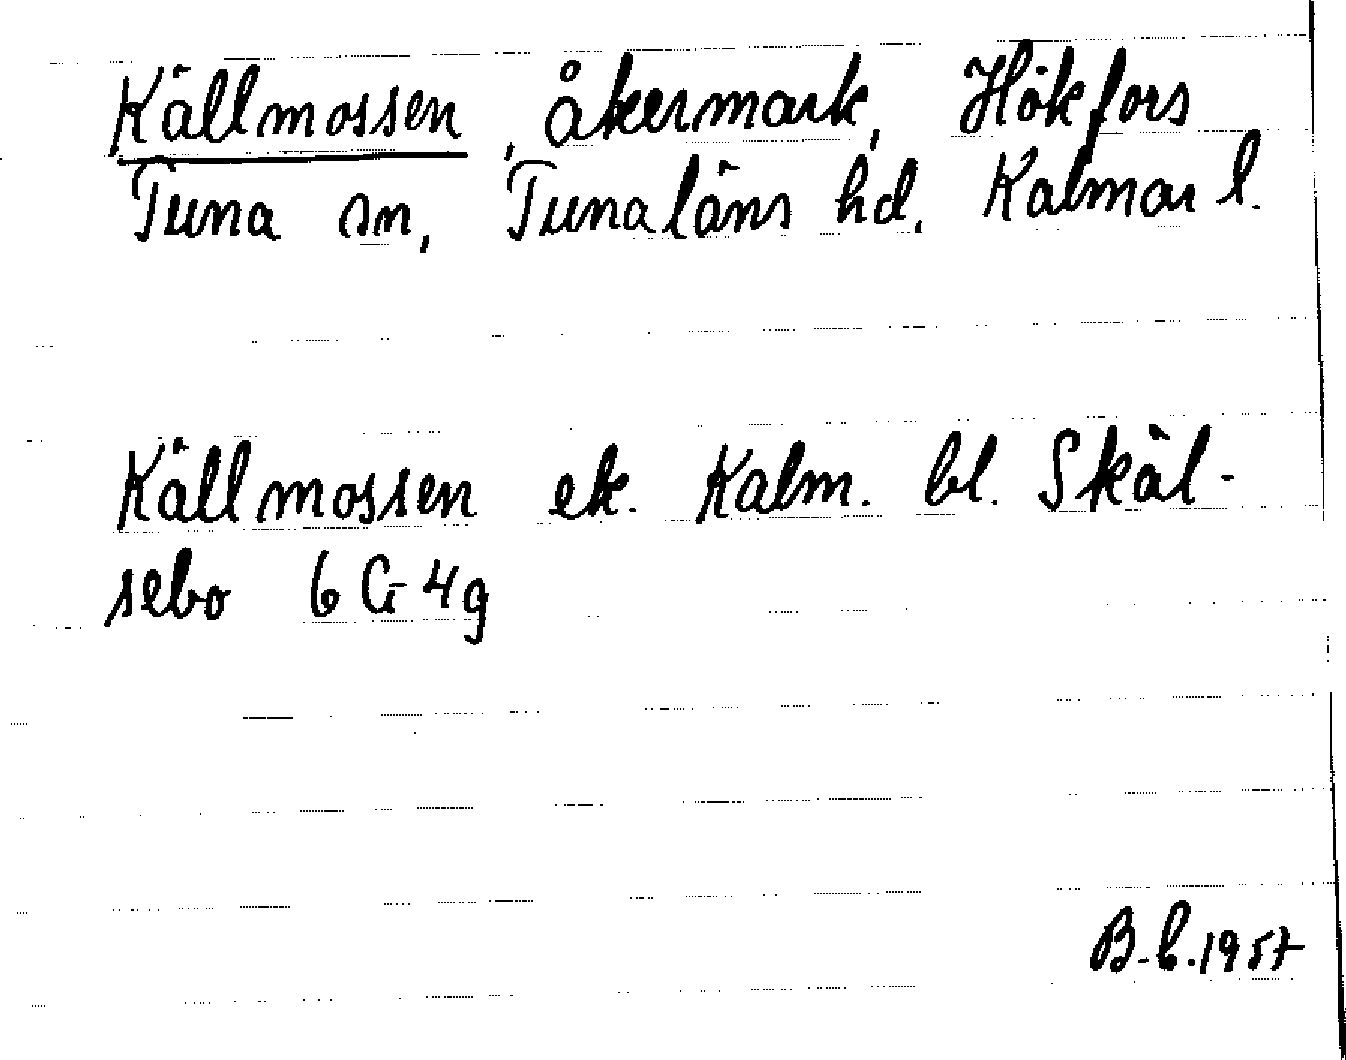 Källmossen, åkermark, Hökfors
Tuna sn, Tunaläns hd. Kalmar l.
Källmossen ek. Kalm. bl. Skäl-
sebo 6 G 4g
B-b. 1957